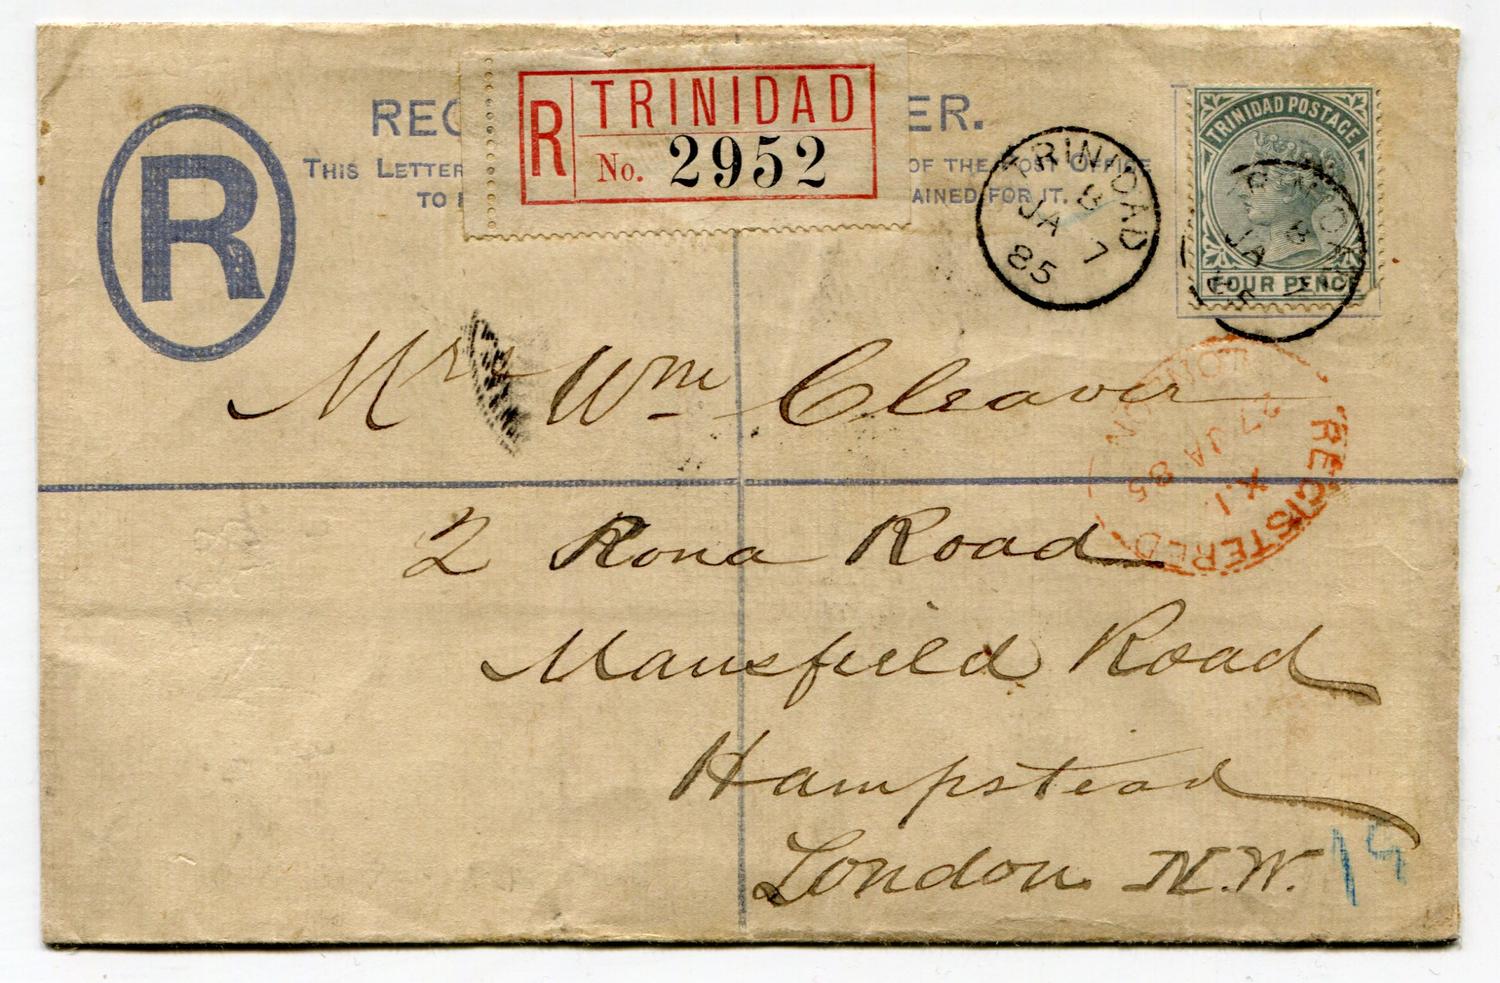 REG ER.
THIS LETTER OF THE POST OFFICE
TO AINED FOR IT.
R
R TRINIDAD
No. 2952
TRINIDAD
8
JA 7
85
TRINIDAD POSTAGE
FOUR PENCE
TRINIDAD
8
JA 7
85
Mrs Wm Cleaver
LONDON
27 JA 85
X.1.
REGISTERED
2 Rona Road
Mansfield Road
Hampstead
London N.W.
14